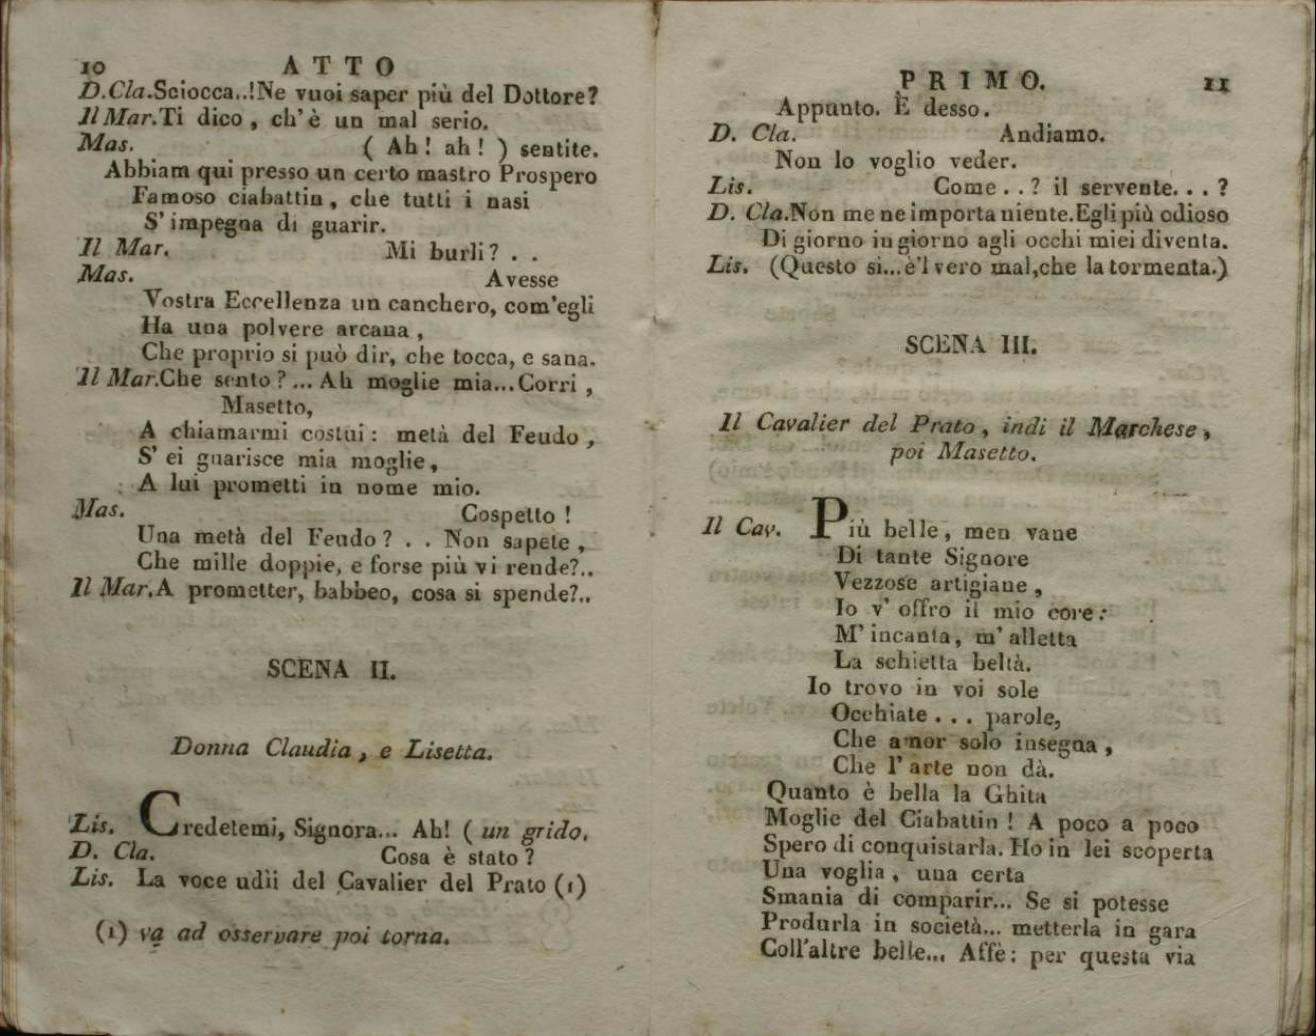 10 ATTO
D. Cla. Sciocca..! Ne vuoi saper più del Dottore?
Il Mar. Ti dico, ch'è un mal serio.
Mas. ( Ah! ah! ) sentite.
Abbiam qui presso un certo mastro Prospero
Famoso ciabattin, che tutti i nasi
S'impegna di guarir.
Il Mar. Mi burli? . .
Mas. Avesse
Vostra Eccellenza un canchero, com'egli
Ha una polvere arcana,
Che proprio si può dir, che tocca, e sana.
Il Mar. Che sento?... Ah moglie mia... Corri,
Masetto,
A chiamarmi costui: metà del Feudo,
S'ei guarisce mia moglie,
A lui prometti in nome mio.
Mas. Cospetto!
Una metà del Feudo? . . Non sapete,
Che mille doppie, e forse più vi rende?..
Il Mar. A prometter, babbeo, cosa si spende?..
SCENA II.
Donna Claudia, e Lisetta.
Lis. Credetemi, Signora... Ah! ( un grido.
D. Cla. Cosa è stato?
Lis. La voce udìi del Cavalier del Prato (1)
(1) va ad osservare poi torna.
PRIMO. 11
Appunto. È desso.
D. Cla. Andiamo.
Non lo voglio veder.
Lis. Come . . ? il servente. . . ?
D. Cla. Non me ne importa niente. Egli più odioso
Di giorno in giorno agli occhi miei diventa.
Lis. (Questo sì... è'l vero mal, che la tormenta.)
SCENA III.
Il Cavalier del Prato, indi il Marchese,
poi Masetto.
Il Cav. Più belle, men vane
Di tante Signore
Vezzose artigiane,
Io v'offro il mio core:
M'incanta, m'alletta
La schietta beltà.
Io trovo in voi sole
Occhiate . . . parole,
Che amor solo insegna,
Che l'arte non dà.
Quanto è bella la Ghita
Moglie del Ciabattin! A poco a poco
Spero di conquistarla. Ho in lei scoperta
Una voglia, una certa
Smania di comparir... Se si potesse
Produrla in società... metterla in gara
Coll'altre belle... Affè: per questa via